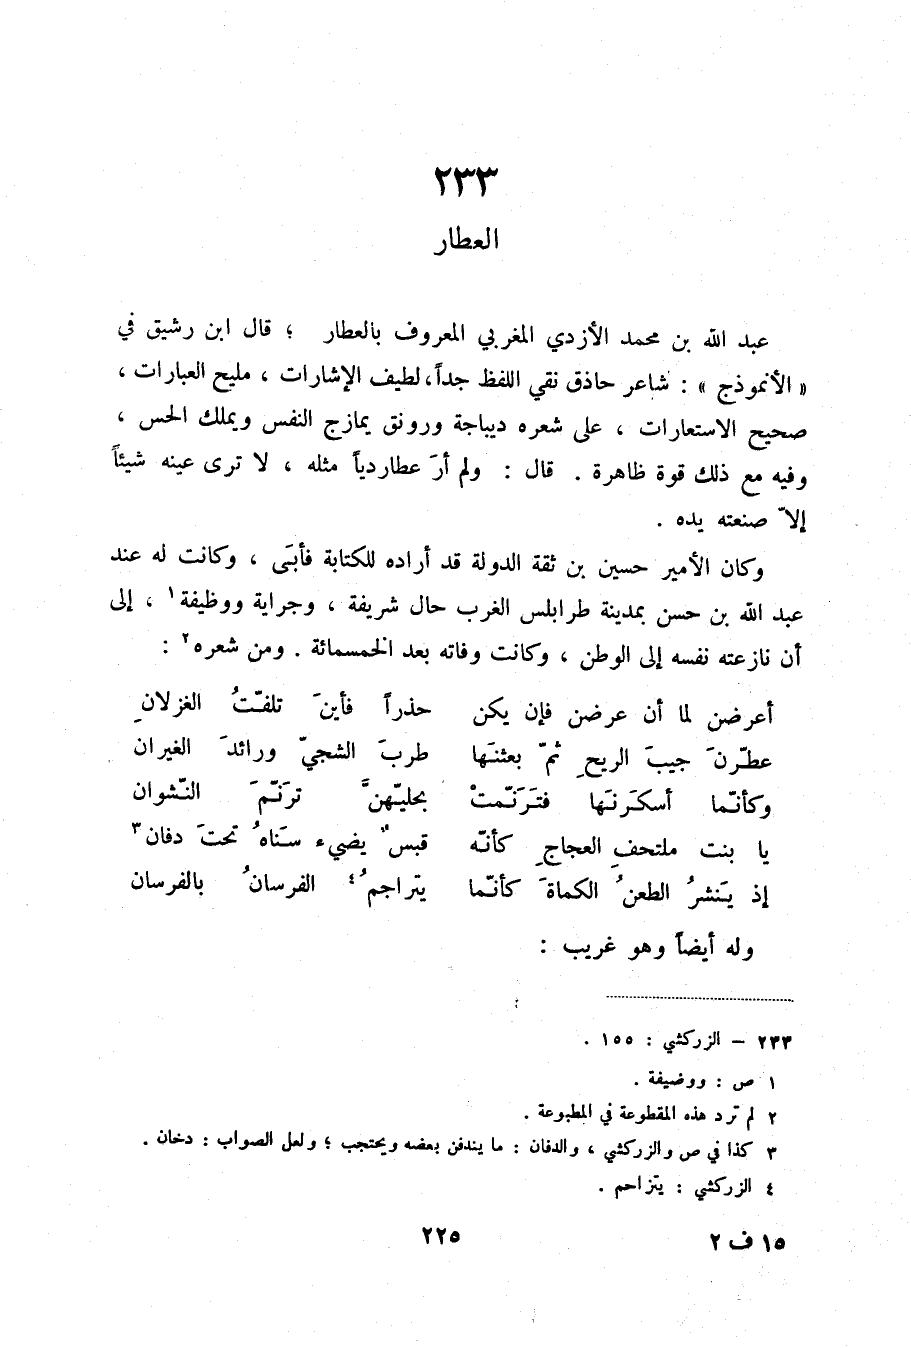 ٢٣٣
العطار
عبد الله بن محمد الأزدي المغربي المعروف بالعطار ؛ قال ابن رشيق في
« الأنموذج » : شاعر حاذق نقي اللفظ جداً، لطيف الإشارات ، مليح العبارات ،
صحيح الاستعارات ، على شعره ديباجة ورونق يمازج النفس ويملك الحس ،
وفيه مع ذلك قوة ظاهرة . قال : ولم أرَ عطاردياً مثله ، لا ترى عينه شيئاً
إلاّ صنعته يده .
وكان الأمير حسين بن ثقة الدولة قد أراده للكتابة فأبَى ، وكانت له عند
عبد الله بن حسن بمدينة طرابلس الغرب حال شريفة ، وجراية ووظيفة١ ، إلى
أن نازعته نفسه إلى الوطن ، وكانت وفاته بعد الخمسمائة . ومن شعره٢ :
أعرضن لما أن عرضن فإن يكن حذراً فأينَ تلفّتُ الغزلانِ
عطّرنَ جيبَ الريحِ ثمّ بعثنَها طربَ الشجيّ ورائدَ الغيران
وكأنّما أسكَرنَها فترَنّمتْ بحليّهنَّ ترَنّمَ النّشوان
يا بنت ملتحفِ العجاجِ كأنّه قبسٌ يضيء سَناهُ تحتَ دفان٣
إذ يَنشرُ الطعنُ الكماةَ كأنّما يتراجمُ٤ الفرسانُ بالفرسان
وله أيضاً وهو غريب :
٢٣٣ – الزركشي : ١٥٥ .
١ ص : ووضيفة .
٢ لم ترد هذه المقطوعة في المطبوعة .
٣ كذا في ص والزركشي ، والدفان : ما يندفن بعضه ويحتجب ؛ ولعل الصواب : دخان .
٤ الزركشي : يتزاحم .
١٥ ف ٢ ٢٢٥